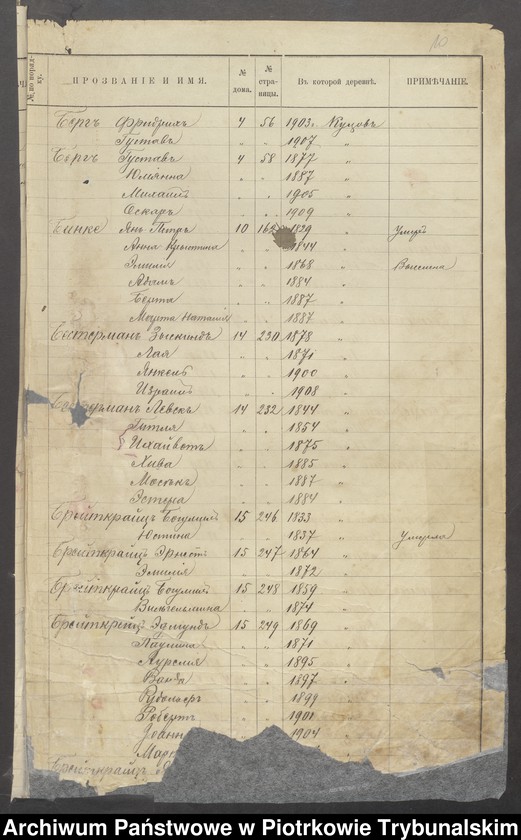 10
№ по порядку. ПРОЗВАНІЕ И ИМЯ. № дома. № страницы. Въ которой деревнѣ. ПРИМѢЧАНІЕ.
Бергъ Фридрихъ 4 56 1903 г.
Густавъ " " 1907 "
Бергъ Густавъ 4 58 1877 "
Юліянна " " 1887 "
Михаилъ " " 1905 "
Оскаръ " " 1909 "
Бинке Янъ Петръ 10 1829 " Умеръ
Анна Крыстина 1844 "
Эмилія " " 1868 "
Адамъ " " 1884 "
Берта " " 1887 "
Марта Наталія " " 1887 "
Бестерманъ 14 230 1878 "
Лая " " 1871 "
Янкель " " 1900 "
Израиль " " 1908 "
14 232 1844 "
Гитля " " 1854 "
" " 1875 "
Хива " " 1885 "
" " 1887 "
Эстера " " 1884 "
Брейткрайцъ Богумилъ 15 246 1833 "
Юстина " " 1837 " Умерла
Брейткрайцъ Эрнстъ 15 247 1864 "
Эмилія " " 1872 "
Брейткрайцъ Богумилъ 15 248 1859 "
Вильгельмина " " 1874 "
Брейткрейцъ Эдмундъ 15 249 1869 "
Паулина " " 1871 "
Аурелія " " 1895 "
Ванда " " 1897 "
Рудольфъ " " 1899 "
Робертъ " " 1901 "
1904 "
Брейткрайцъ
Archiwum Państwowe w Piotrkowie Trybunalskim